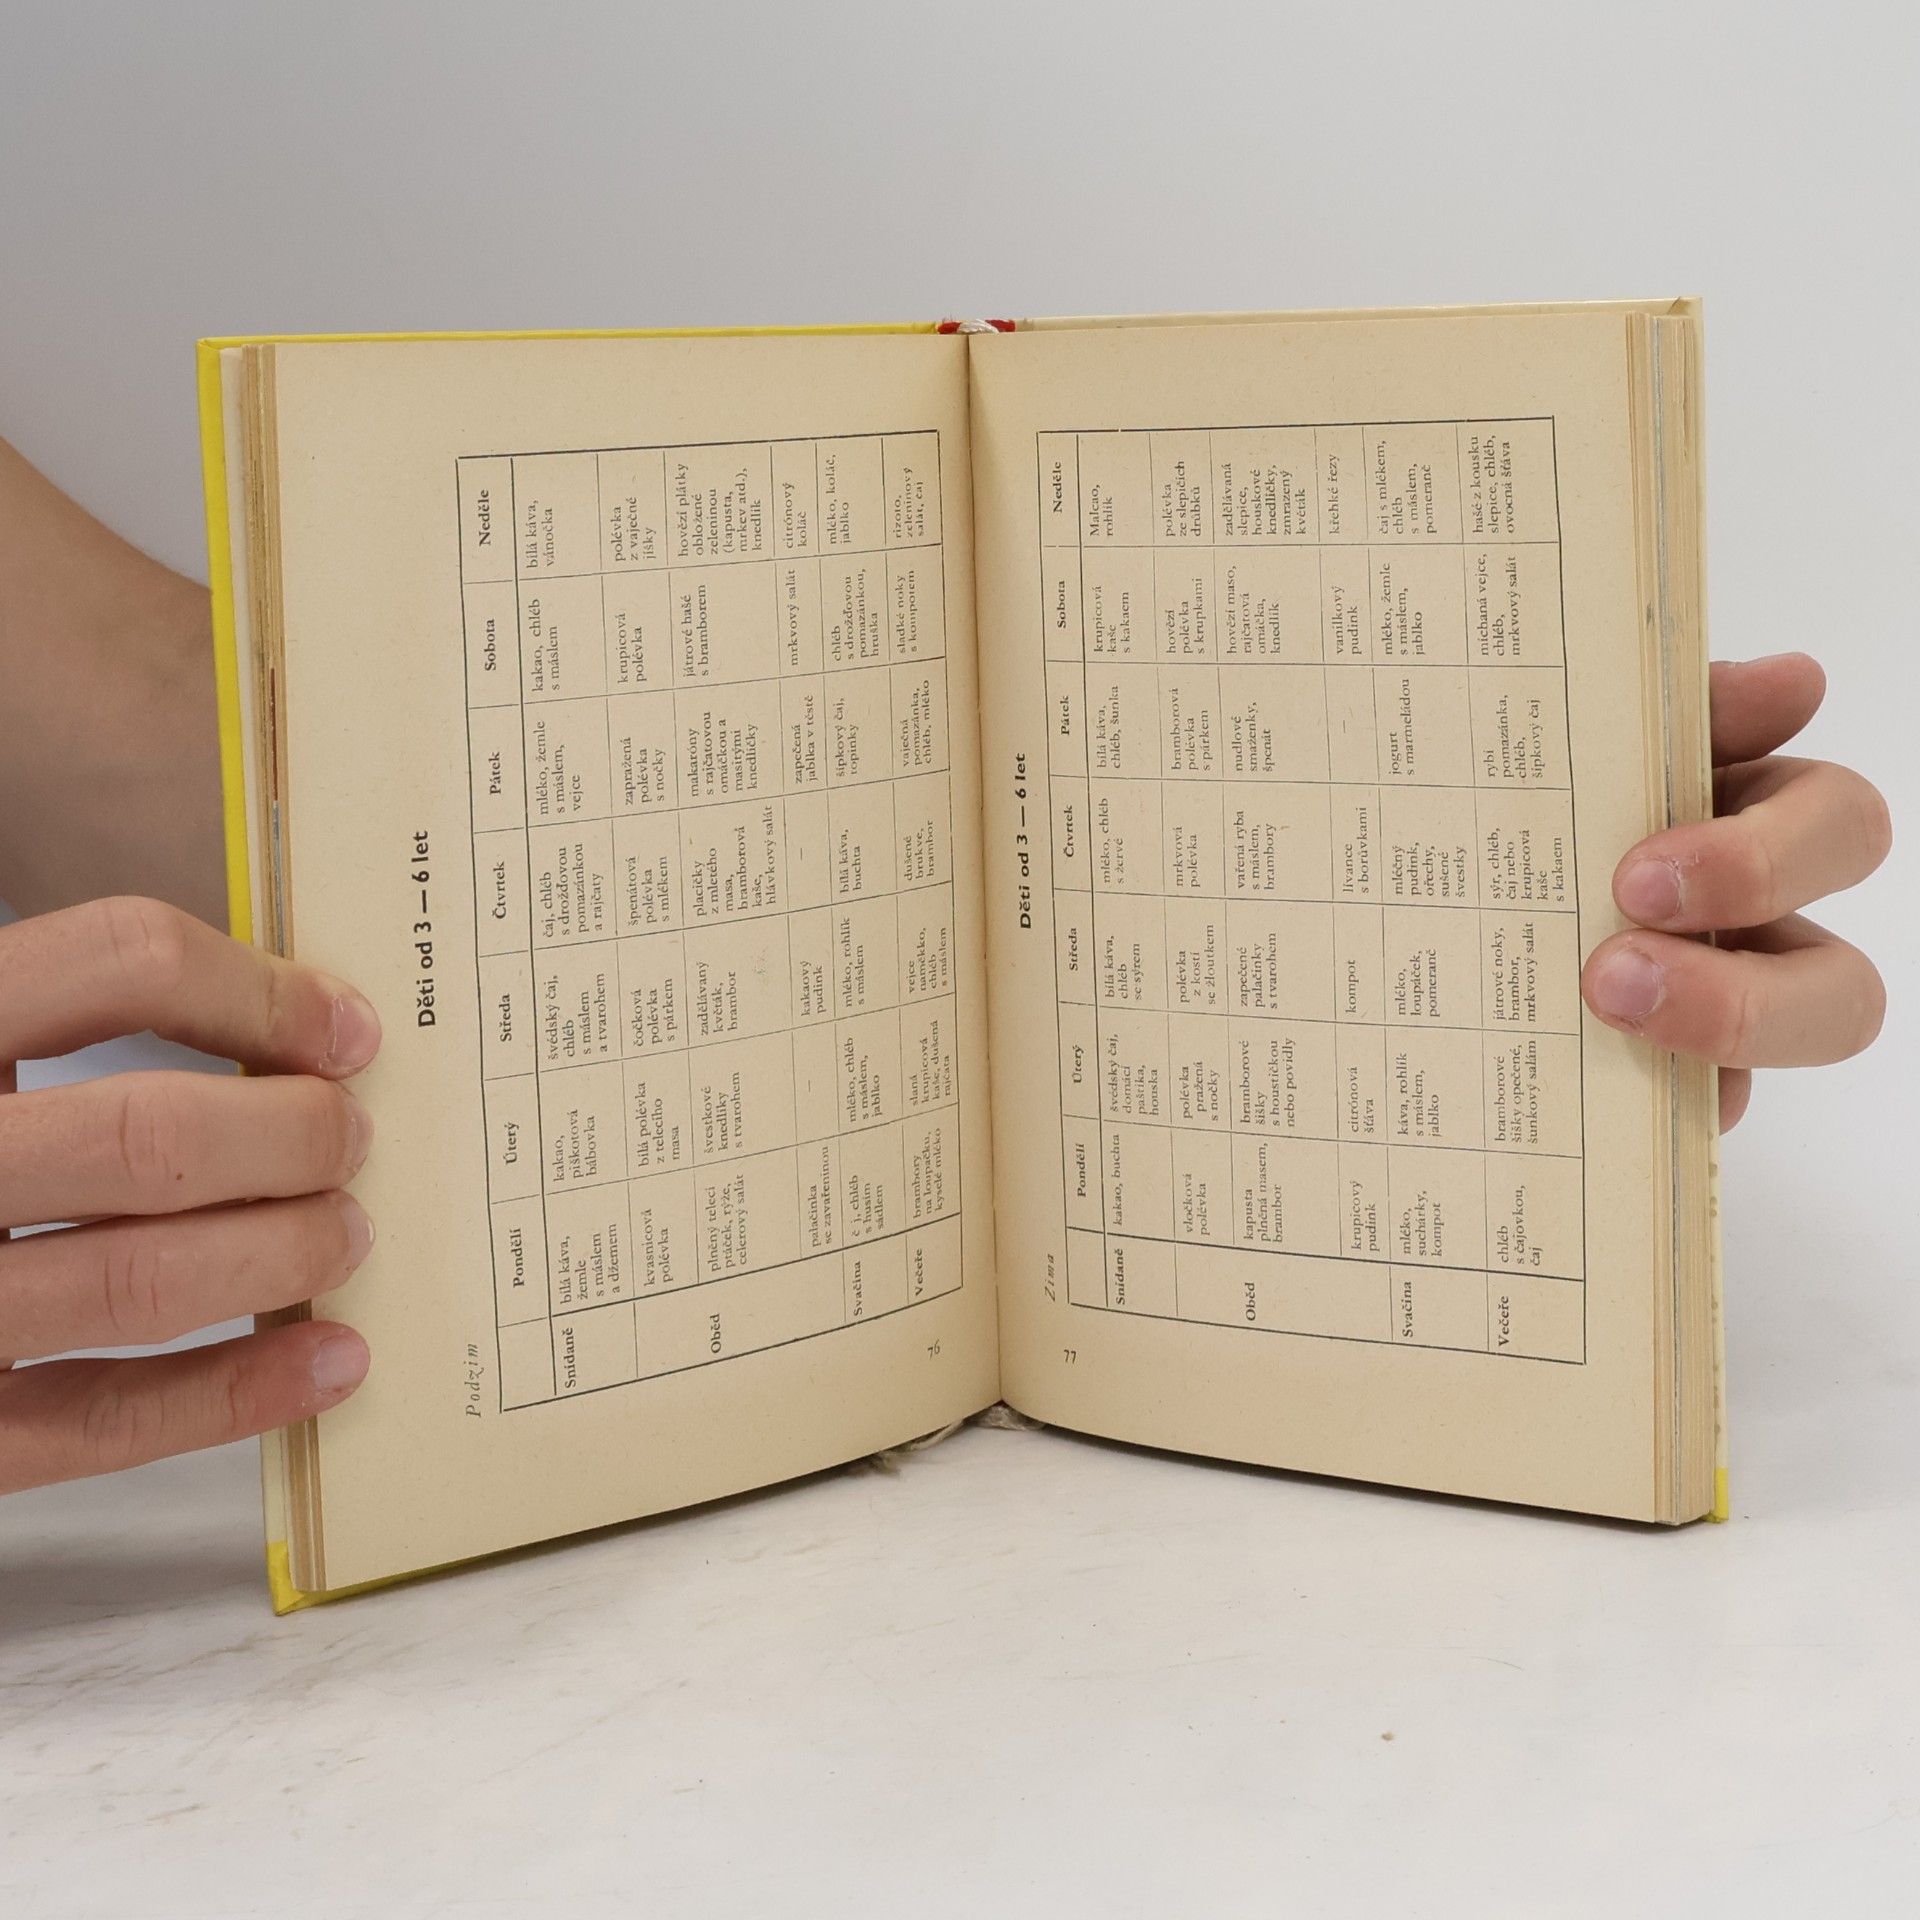 Děti od 3 — 6 let
Podzim
Pondělí
Úterý
Středa
Čtvrtek
Pátek
Sobota
Neděle
Snídaně
bílá káva,
žemle
s máslem
a džemem
kakao,
piškotová
bábovka
švédský čaj,
chléb
s máslem
a tvarohem
čaj, chléb
s drožďovou
pomazánkou
a rajčaty
mléko, žemle
s máslem,
vejce
kakao, chléb
s máslem
bílá káva,
vánočka
Oběd
kvasnicová
polévka
bílá polévka
z telecího
masa
čočková
polévka
s párkem
špenátová
polévka
s mlékem
zapražená
polévka
s nočky
krupicová
polévka
polévka
z vaječné
jíšky
plněný telecí
ptáček, rýže,
celerový salát
švestkové
knedlíky
s tvarohem
zadělávaný
květák,
brambor
placičky
z mletého
masa,
bramborová
kaše,
hlávkový salát
makaróny
s rajčatovou
omáčkou a
masitými
knedlíčky
játrové hašé
s bramborem
hovězí plátky
obložené
zeleninou
(kapusta,
mrkev atd.),
knedlík
palačinka
se zavařeninou
—
kakaový
pudink
—
zapečená
jablka v těstě
mrkvový salát
citrónový
koláč
Svačina
č j, chléb
s husím
sádlem
mléko, chléb
s máslem,
jablko
mléko, rohlík
s máslem
bílá káva,
buchta
šípkový čaj,
topinky
chléb
s drožďovou
pomazánkou,
hruška
mléko, koláč,
jablko
Večeře
brambory
na loupačku,
kyselé mléko
slaná
krupicová
kaše, dušená
rajčata
vejce
naměkko,
chléb
s máslem
dušené
brukve,
brambor
vaječná
pomazánka,
chléb, mléko
sladké noky
s kompotem
rizoto,
zeleninový
salát, čaj
76
Děti od 3 — 6 let
Zima
Pondělí
Úterý
Středa
Čtvrtek
Pátek
Sobota
Neděle
Snídaně
kakao, buchta
švédský čaj,
domácí
paštika,
houska
bílá káva,
chléb
se sýrem
mléko, chléb
s žervé
bílá káva,
chléb, šunka
krupicová
kaše
s kakaem
Malcao,
rohlík
Oběd
vločková
polévka
polévka
pražená
s nočky
polévka
z kostí
se žloutkem
mrkvová
polévka
bramborová
polévka
s párkem
hovězí
polévka
s krupkami
polévka
ze slepičích
drůbků
kapusta
plněná masem,
brambor
bramborové
šišky
s houstičkou
nebo povidly
zapečené
palačinky
s tvarohem
vařená ryba
s máslem,
brambory
nudlové
smaženky,
špenát
hovězí maso,
rajčatová
omáčka,
knedlík
zadělávaná
slepice,
houskové
knedlíčky,
zmrazený
květák
krupicový
pudink
citrónová
šťáva
kompot
lívance
s borůvkami
—
vanilkový
pudink
křehké řezy
Svačina
mléko,
suchárky,
kompot
káva, rohlík
s máslem,
jablko
mléko,
loupáček,
pomeranč
mléčný
pudink,
ořechy,
sušené
švestky
jogurt
s marmeládou
mléko, žemle
s máslem,
jablko
čaj s mlékem,
chléb
s máslem,
pomeranč
Večeře
chléb
s čajovkou,
čaj
bramborové
šišky opečené,
šunkový salám
játrové noky,
brambor,
mrkvový salát
sýr, chléb,
čaj nebo
krupicová
kaše
s kakaem
rybí
pomazánka,
chléb,
šípkový čaj
míchaná vejce,
chléb,
mrkvový salát
hašé z kousku
slepice, chléb,
ovocná šťáva
77